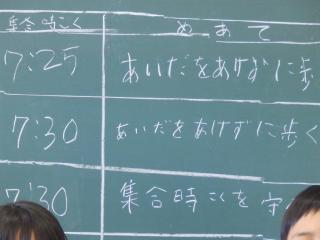 集合時こく めあて
7:25 あいだをあけずに歩
7:30 あいだをあけずに歩く
7:30 集合時こくを守